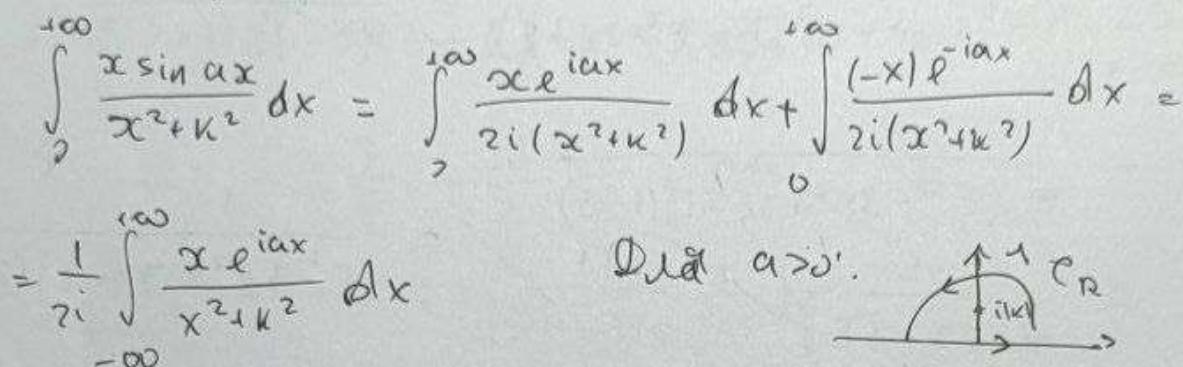 ∫₀^{+∞} \frac{x sin ax}{x²+k²} dx = ∫₀^{+∞} \frac{x e^{iax}}{2i(x²+k²)} dx + ∫₀^{+∞} \frac{(-x) e^{-iax}}{2i(x²+k²)} dx =
= \frac{1}{2i} ∫_{-∞}^{+∞} \frac{x e^{iax}}{x²+k²} dx Для a>0: C_R i|k|